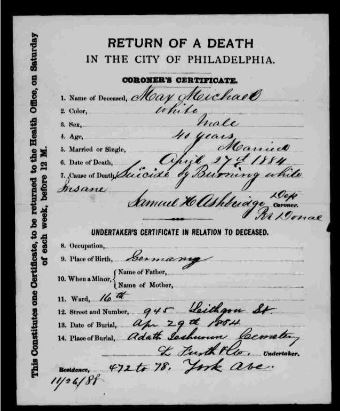 RETURN OF A DEATH
IN THE CITY OF PHILADELPHIA.
CORONER'S CERTIFICATE.
1. Name of Deceased, Max Michael
2. Color, White
3. Sex, Male
4. Age, 40 years
5. Married or Single, Married
6. Date of Death, April 27th 1884
7. Cause of Death, Suicide by Burning while
Insane
Samuel H. Ashbridge Dep
Coroner.
UNDERTAKER'S CERTIFICATE IN RELATION TO DECEASED.
8. Occupation,
9. Place of Birth, Germany
10. When a Minor, Name of Father,
Name of Mother,
11. Ward, 16th
12. Street and Number, 945 Leithgow St.
13. Date of Burial, Apr 29th 1884
14. Place of Burial, Adath Jeshurun Cemetery
Undertaker.
Residence, 472 to 78. York Ave.
10/26/88
This Constitutes one Certificate, to be returned to the Health Office, on Saturday
of each week, before 12 M.